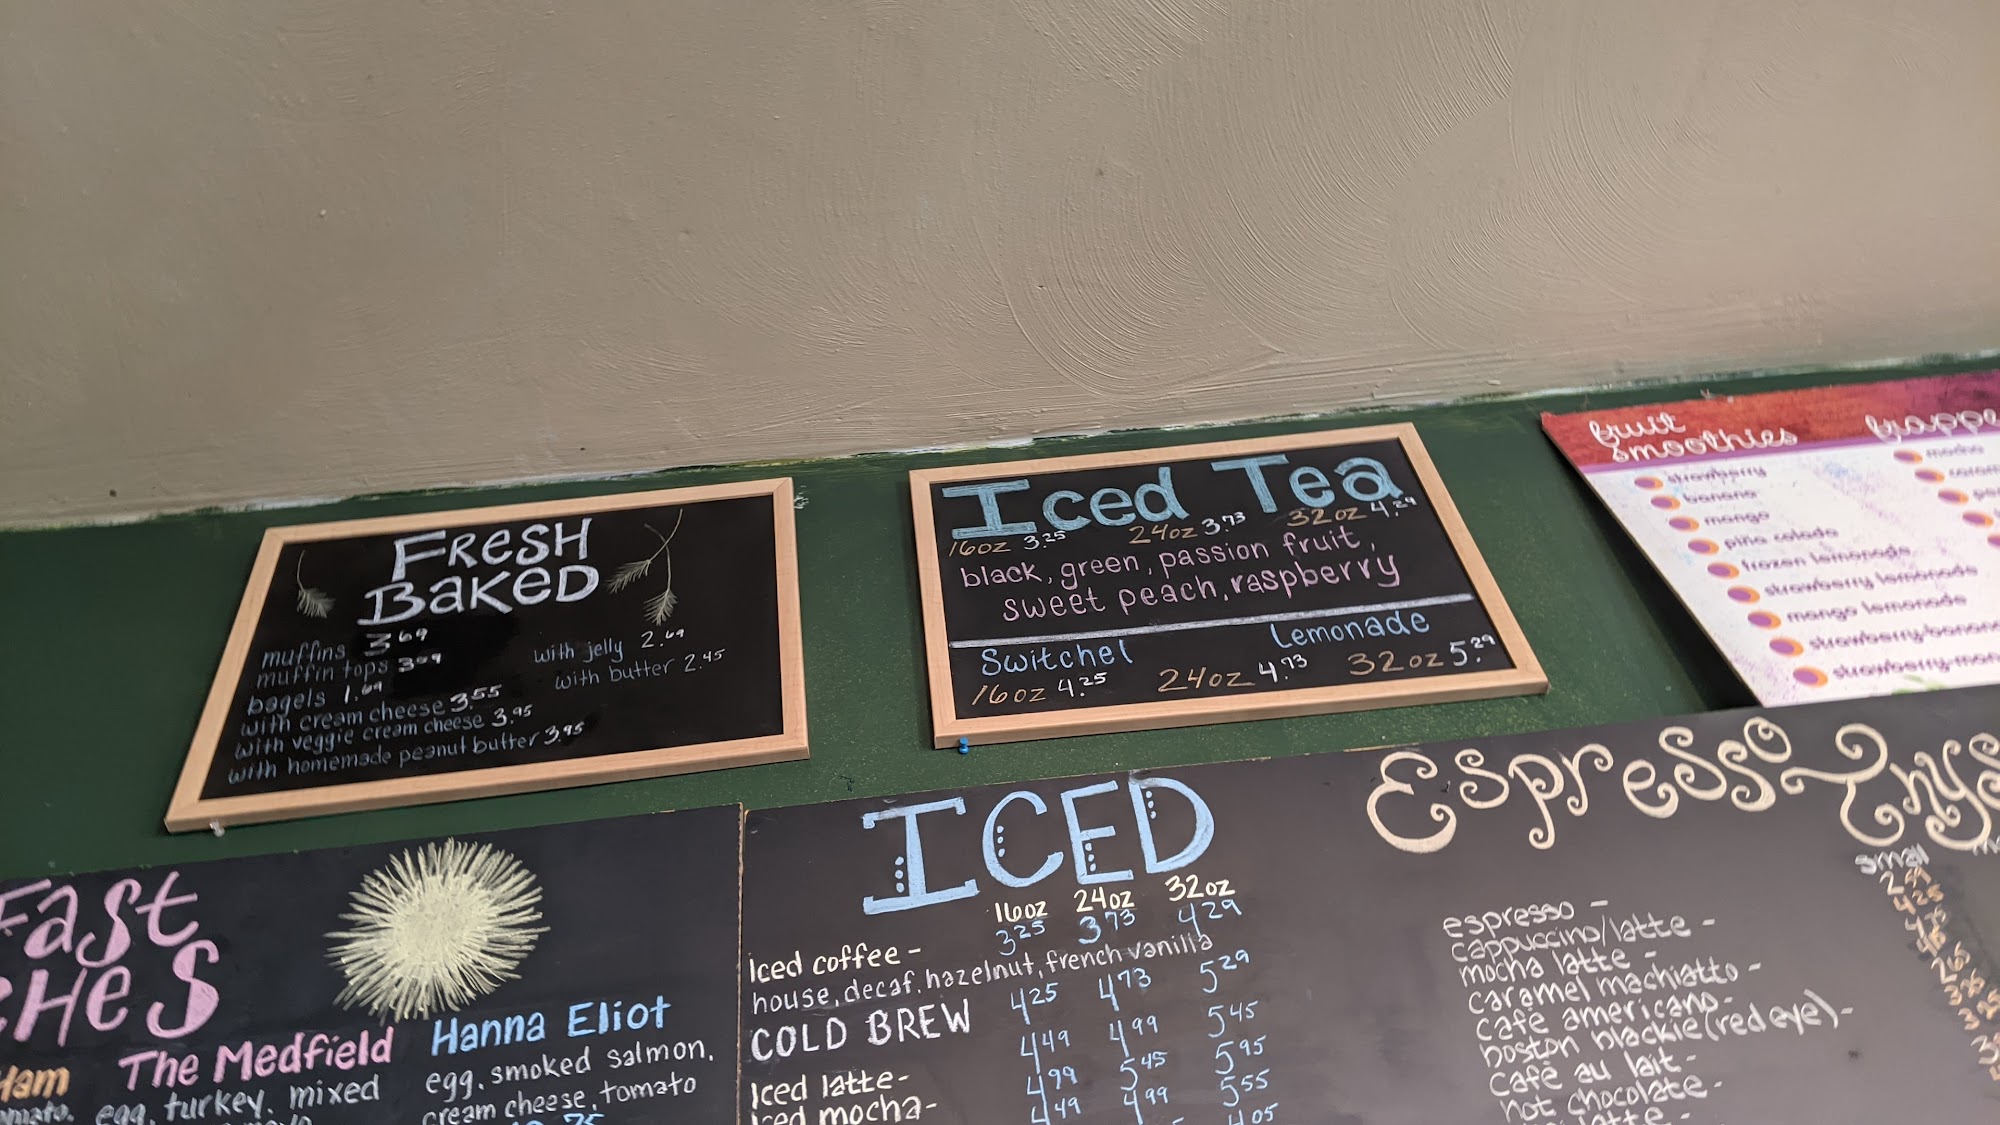 FRESH
BAKED
muffins 3.69
muffin tops 3.09
bagels 1.69
with cream cheese 3.55
with veggie cream cheese 3.95
with homemade peanut butter 3.95
with jelly 2.69
with butter 2.45
Iced Tea
16oz 3.25 24oz 3.73 32oz 4.29
black, green, passion fruit,
sweet peach, raspberry
Switchel Lemonade
16oz 4.25 24oz 4.73 32oz 5.29
fruit
smoothies
strawberry
banana
mango
piña colada
frozen lemonade
strawberry lemonade
mango lemonade
frappe
mocha
The Medfield
egg, turkey, mixed
Hanna Eliot
egg, smoked salmon,
cream cheese, tomato
Ham
ICED
16oz 24oz 32oz
Iced coffee - 3.25 3.73 4.29
house, decaf, hazelnut, french vanilla
COLD BREW 4.25 4.73 5.29
Iced latte - 4.49 4.99 5.45
Iced mocha - 4.99 5.45 5.95
4.49 4.99 5.55
4.05
Espresso
small
espresso -
cappuccino/latte -
mocha latte -
caramel machiatto -
café americano -
boston blackie (red eye) -
café au lait -
hot chocolate -
latte -